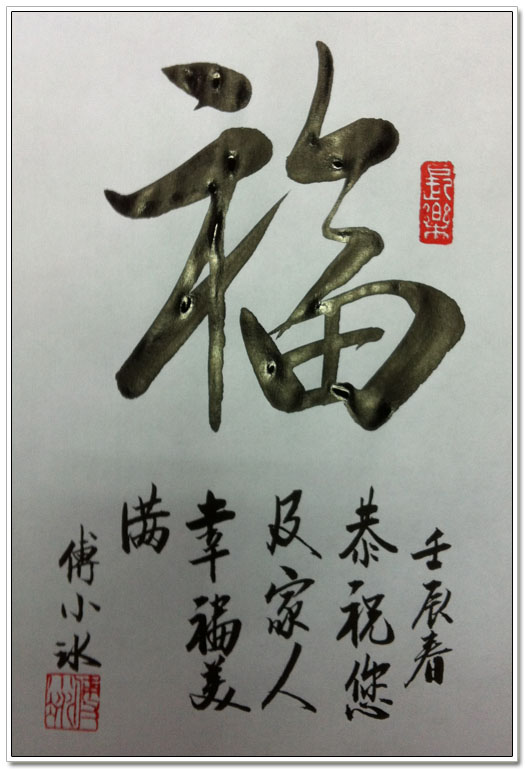 福
長樂
壬辰春
恭祝您
及家人
幸福美
满
傅小冰